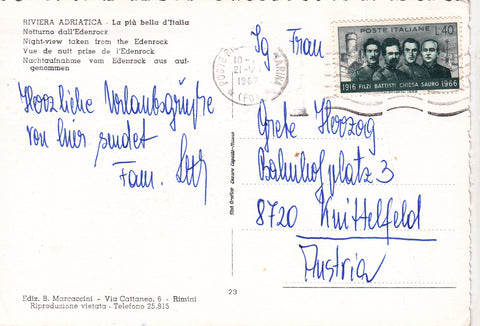 RIVIERA ADRIATICA - La più bella d'Italia
Notturno dall'Edenrock
Night-view taken from the Edenrock
Vue de nuit prise de l'Edenrock
Nachtaufnahme vom Edenrock aus auf-
genommen
Herzliche Urlaubsgrüße
von hier sendet
Fam.
POSTE ITALIANE
L. 40
1916 FILZI BATTISTI CHIESA SAURO 1966
21
(FO)
Frau
Grete Herzog
Bahnhofplatz 3
8720 Knittelfeld
Austria
23
Ediz. B. Marcaccini - Via Cattaneo, 6 - Rimini
Riproduzione vietata - Telefono 25.815